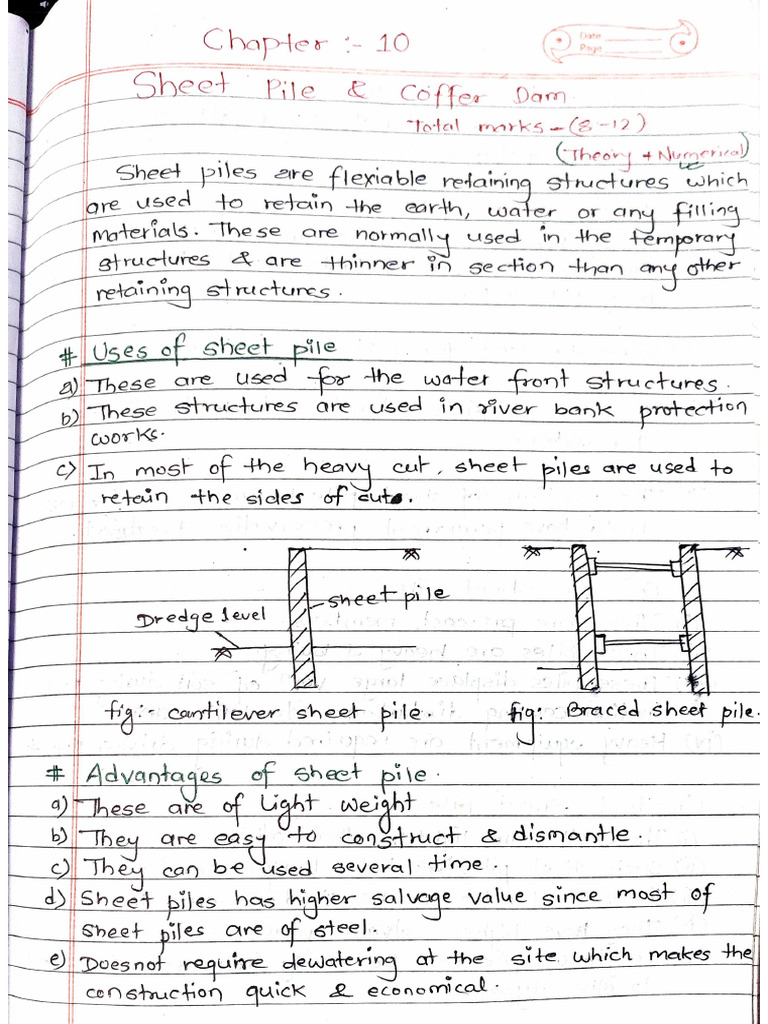 Chapter :- 10
Date
Page
Sheet Pile & Coffer Dam
Total marks - (8-12)
(Theory + Numerical)
Sheet piles are flexiable retaining structures which
are used to retain the earth, water or any filling
materials. These are normally used in the temporary
structures & are thinner in section than any other
retaining structures.
# Uses of sheet pile
a) These are used for the water front structures.
b) These structures are used in river bank protection
works.
c) In most of the heavy cut, sheet piles are used to
retain the sides of cuts.
sheet pile
Dredge level
fig:- cantilever sheet pile.
fig: Braced sheet pile.
# Advantages of sheet pile.
a) These are of Light weight
b) They are easy to construct & dismantle.
c) They can be used several time.
d) Sheet piles has higher salvage value since most of
sheet piles are of steel.
e) Doesnot require dewatering at the site which makes the
construction quick & economical.